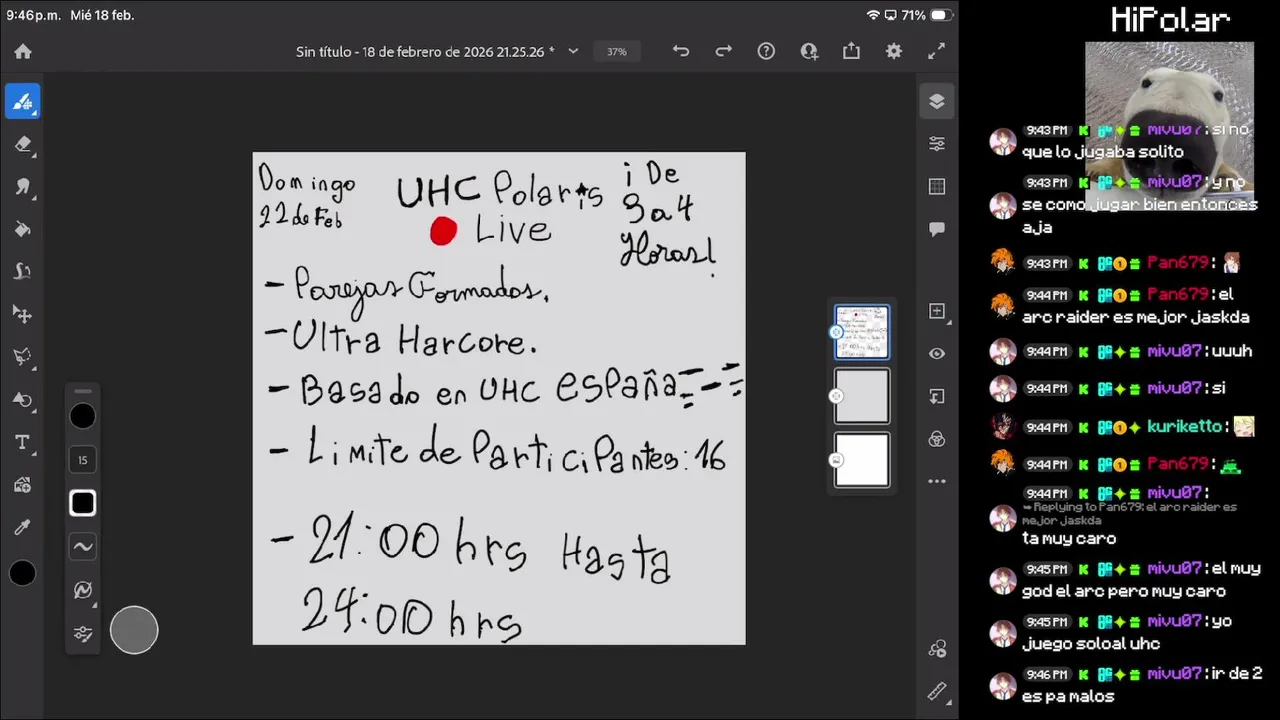 9:46 p.m. Mié 18 feb.
71%
Sin título - 18 de febrero de 2026 21.25.26 *
37%
15
Domingo
22 de Feb
UHC Polaris
Live
¡ De
3 a 4
Horas!
- Parejas Formados.
- Ultra Harcore.
- Basado en UHC España
- Limite de Participantes: 16
- 21:00 hrs Hasta
24:00 hrs
HiPolar
9:43 PM mivu07: si no
que lo jugaba solito
9:43 PM mivu07: y no
se como jugar bien entonces
aja
9:43 PM Pan679:
9:44 PM Pan679: el
arc raider es mejor jaskda
9:44 PM mivu07: uuuh
9:44 PM mivu07: si
9:44 PM kuriketto:
9:44 PM Pan679:
9:44 PM mivu07:
Replying to Pan679: el arc raider es
mejor jaskda
ta muy caro
9:45 PM mivu07: el muy
god el arc pero muy caro
9:45 PM mivu07: yo
juego soloal uhc
9:46 PM mivu07: ir de 2
es pa malos